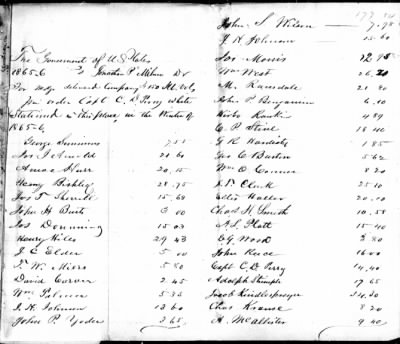 The Government of U States
1865-6 To Jonathan P Milner Dr
For sundry delivered Company 180 Ill. Vol,
per order Capt C. D. Perry while
stationed in this place, in the Winter of
1865-6,
George Simmons 7.51
Jos J Arnold 21.60
Amos Starr 20.15
Henry Bishlip 28.75
Jos T Sherrill 15.68
John H Butt 3 00
Jos Dounning 15 03
Henry Hiles 29 43
J C Elder 5 00
T. W. Miers 5 80
David Corver 2 45
Wm Palmer 5 33
J. H. Johnson 13 60
John P Yoder 3 65
177 84
John S Wilson 7.95
J H Johnson 15.60
Jos Morris 12 95
Wm West 26.20
M. Ransdale 21 80
John P Benjamin 6.10
Kirbo Rankin 4 89
C. P. Steul 18 40
G. R. Hardisty 1 85
Geo C Burton 5.62
Wm O Conner 8 20
J. D. Clark 25 10
Eltis Haller 20.10
Chas H. Smith 10.58
A. L. Platt 15 40
C G. Wood 3 80
John Reece 16 00
Capt C. D. Perry 14,40
Adolph Stimple 17 65
Jacob Kindlesperger 34,30
Chas Krause 8 20
A. McAllister 9 40